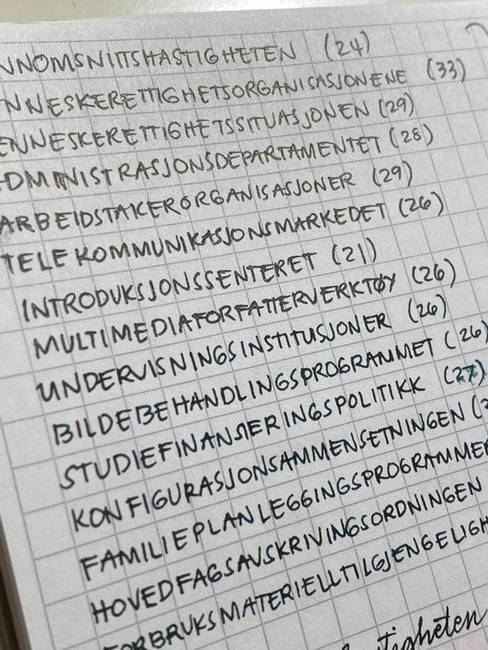 NNOMSNITTSHASTIGHETEN (24)
NNESKERETTIGHETSORGANISASJONENE (33)
ENNESKERETTIGHETSSITUASJONEN (29)
DMINISTRASJONSDEPARTAMENTET (28)
ARBEIDSTAKERORGANISASJONER (29)
TELEKOMMUNIKASJONSMARKEDET (26)
INTRODUKSJONSSENTERET (21)
MULTIMEDIAFORFATTERVERKTØY (26)
UNDERVISNINGSINSTITUSJONER (26)
BILDEBEHANDLINGSPROGRAMMET (26)
STUDIEFINANSIERINGSPOLITIKK (27)
KONFIGURASJONSAMMENSETNINGEN (2
FAMILIEPLANLEGGINGSPROGRAMMER
HOVEDFAGSAVSKRIVINGSORDNINGEN
FORBRUKSMATERIELLTILGJENGELIGH
tigheten